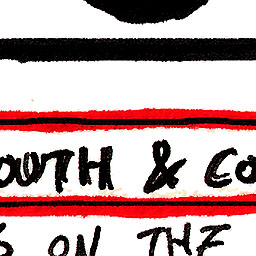 OUTH & CO
S ON THE